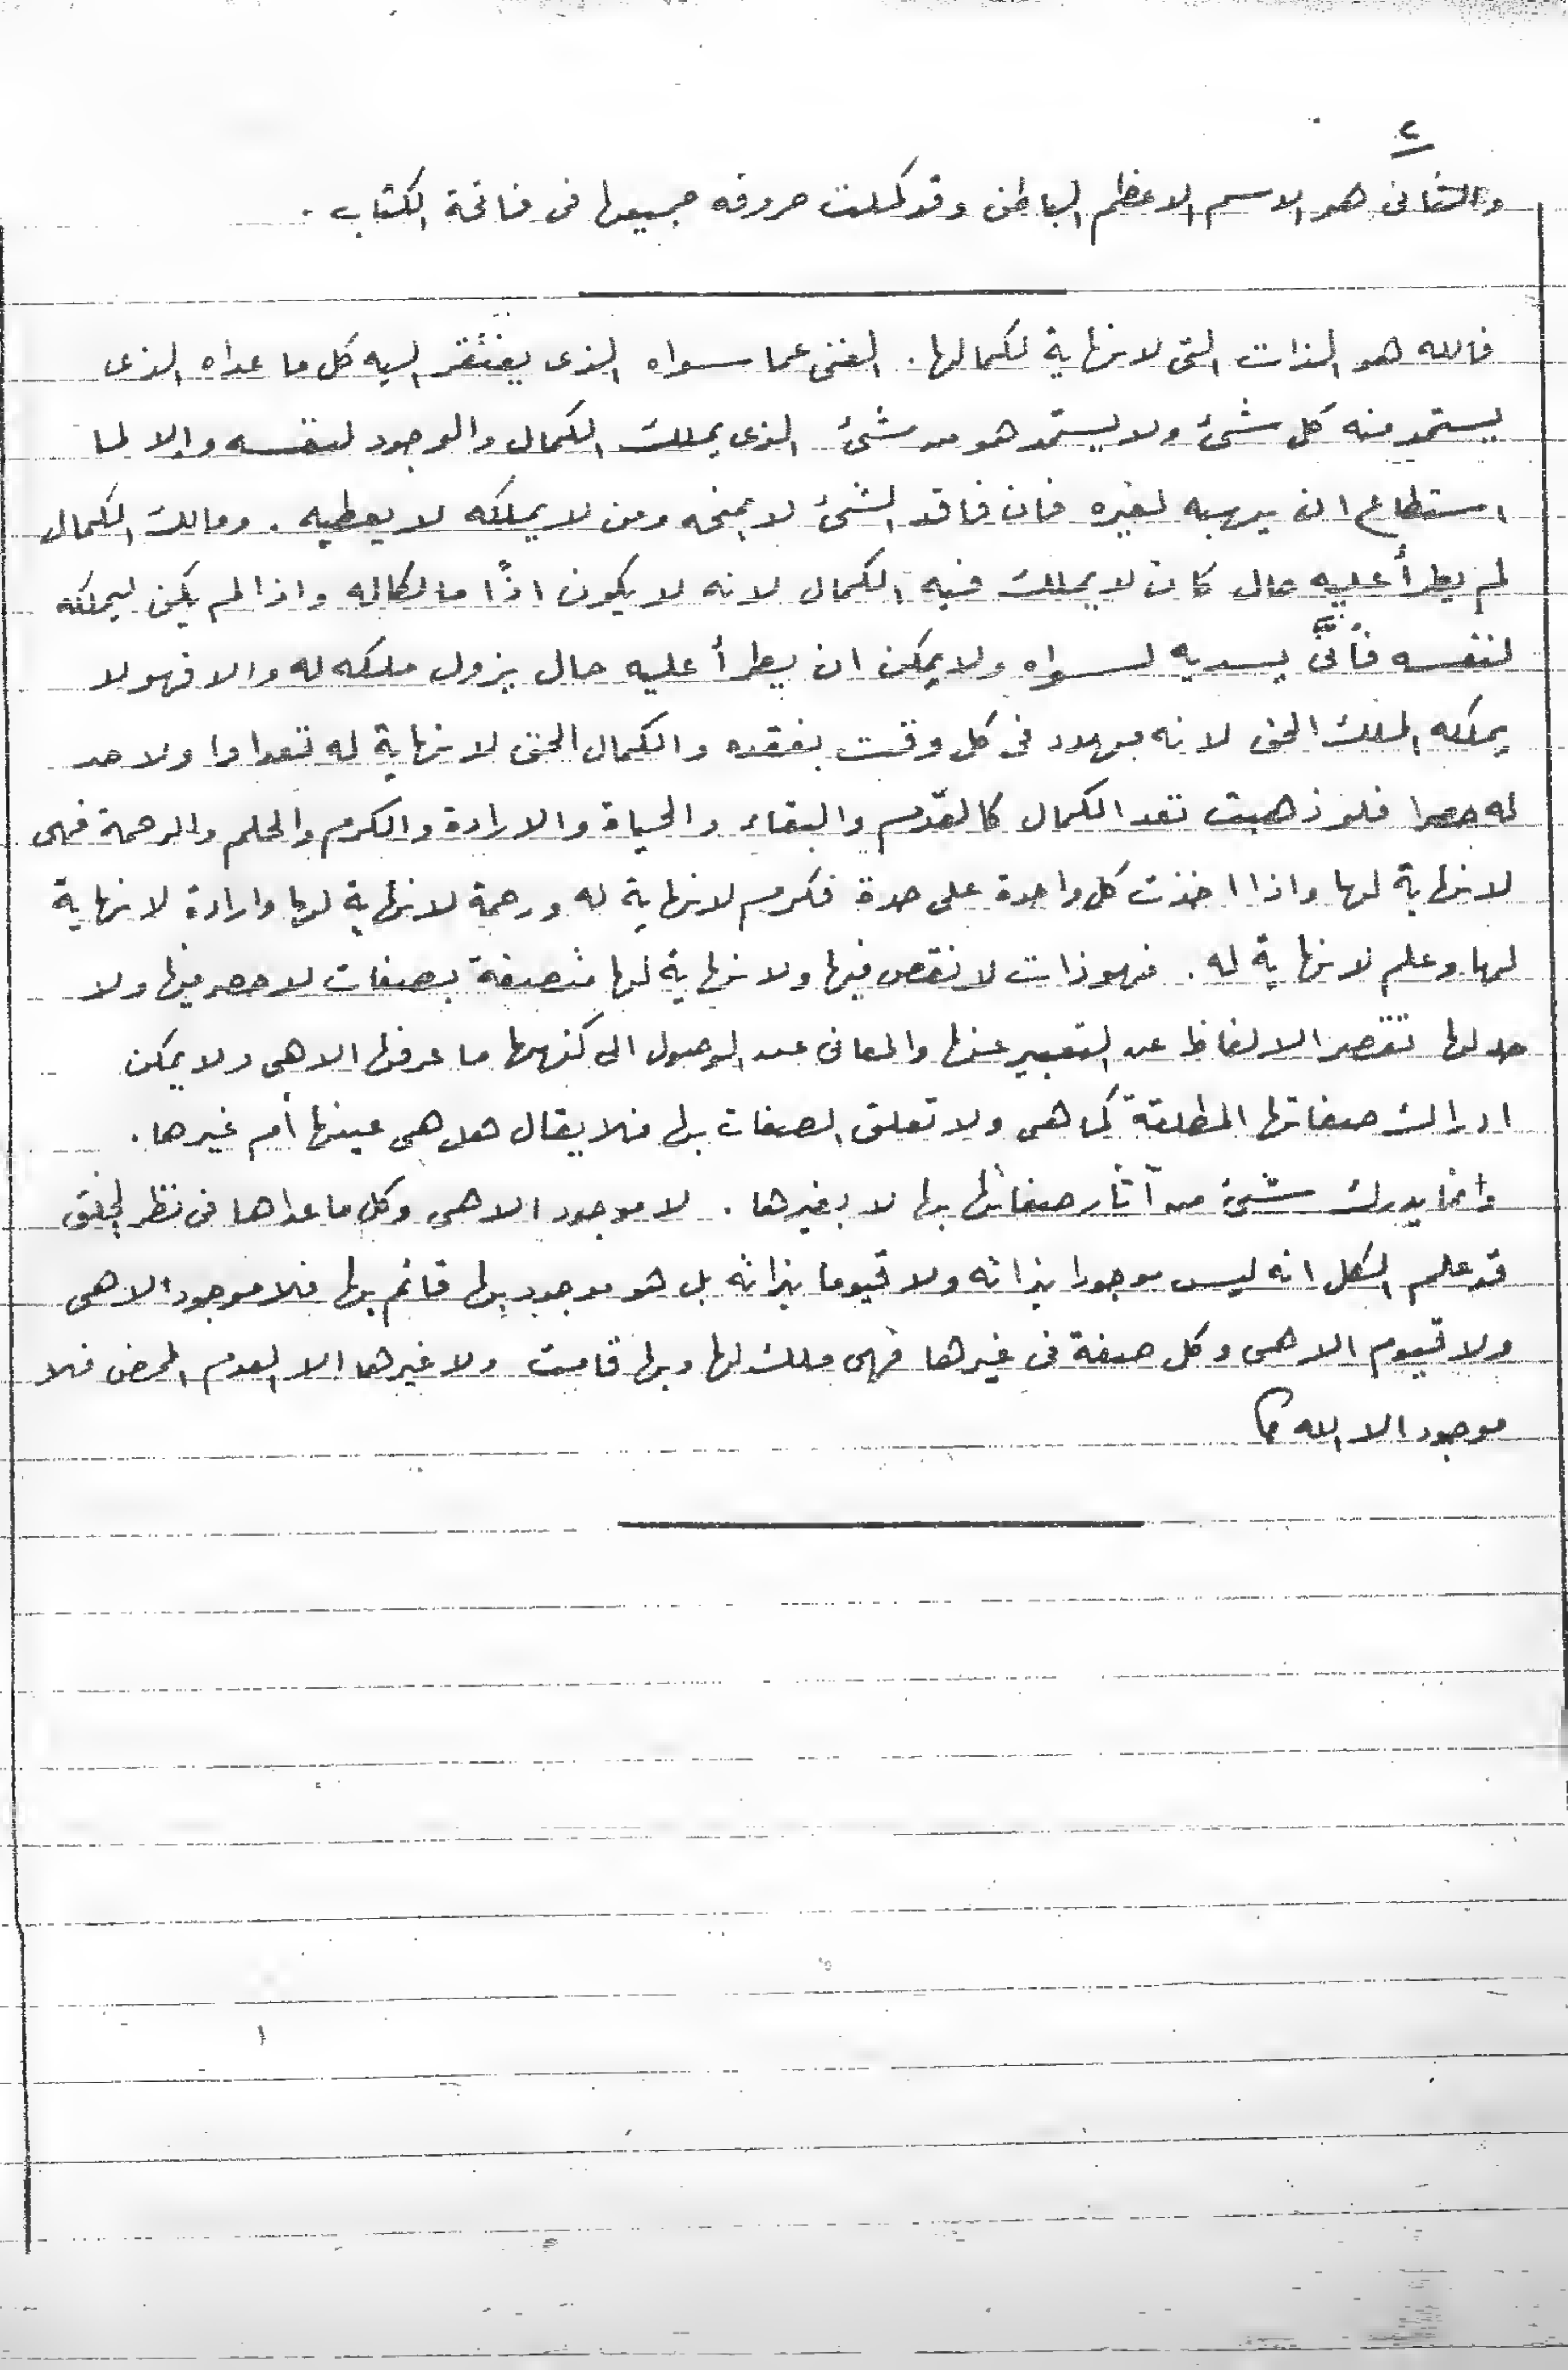 ٢
والثانى هو الاسم الاعظم الباطن وقد كملت حروفه جميعها فى فاتحة الكتاب .
فالله هو الذات التى لا نهاية لكمالها . الغنى عما سواه الذى يفتقر اليه كل ما عداه الذى
يستمد منه كل شئ ولا يستمد هو من شئ الذى يملك الكمال والوجود لنفسه والا لما
استطاع ان يهبه لغيره فان فاقد الشئ لا يمنحه ومن لا يملكه لا يعطيه . ومالك الكمال
لم يطرأ عليه حال كان لا يملك فيه الكمال لانه لا يكون اذًا مالكا له واذا لم يكن ليملكه
لنفسه فأنَّى يسديه لسواه ولا يمكن ان يطرأ عليه حال يزول ملكه له والا فهو لا
يملكه الملك الحق لانه مهدد فى كل وقت بفقده والكمال الحق لا نهاية له تعدادا ولا حد
له حصرا فلو ذهبت تعد الكمال كالقدم والبقاء والحياة والارادة والكرم والحلم والرحمة فهى
لا نهاية لها واذا اخذت كل واحدة على حدة فكرم لا نهاية له ورحمة لا نهاية لها وارادة لا نهاية
لها وعلم لا نهاية له . فهو ذات لا نقص فيها ولا نهاية لها متصفة بصفات لا حصر فيها ولا
حد لها تقصر الالفاظ عن التعبير عنها والمعانى عن الوصول الى كنهها ما عرفها الا هى ولا يمكن
ادراك صفاتها المطلقة كما هى ولا تعلق الصفات بها فلا يقال هل هى عينها أم غيرها .
وانما يدرك شئ من آثار صفاتها بها لا بغيرها . لا موجود الا هى وكل ما عداها فى نظر الخلق
قد علم الكل انه ليس موجودا بذاته ولا قيوما بذاته بل هو موجود بها قائم بها فلا موجود الا هى
ولا قيوم الا هى وكل صفة فى غيرها فهى ملك لها وبها قامت ولا غيرها الا العدم المحض فلا
موجود الا الله